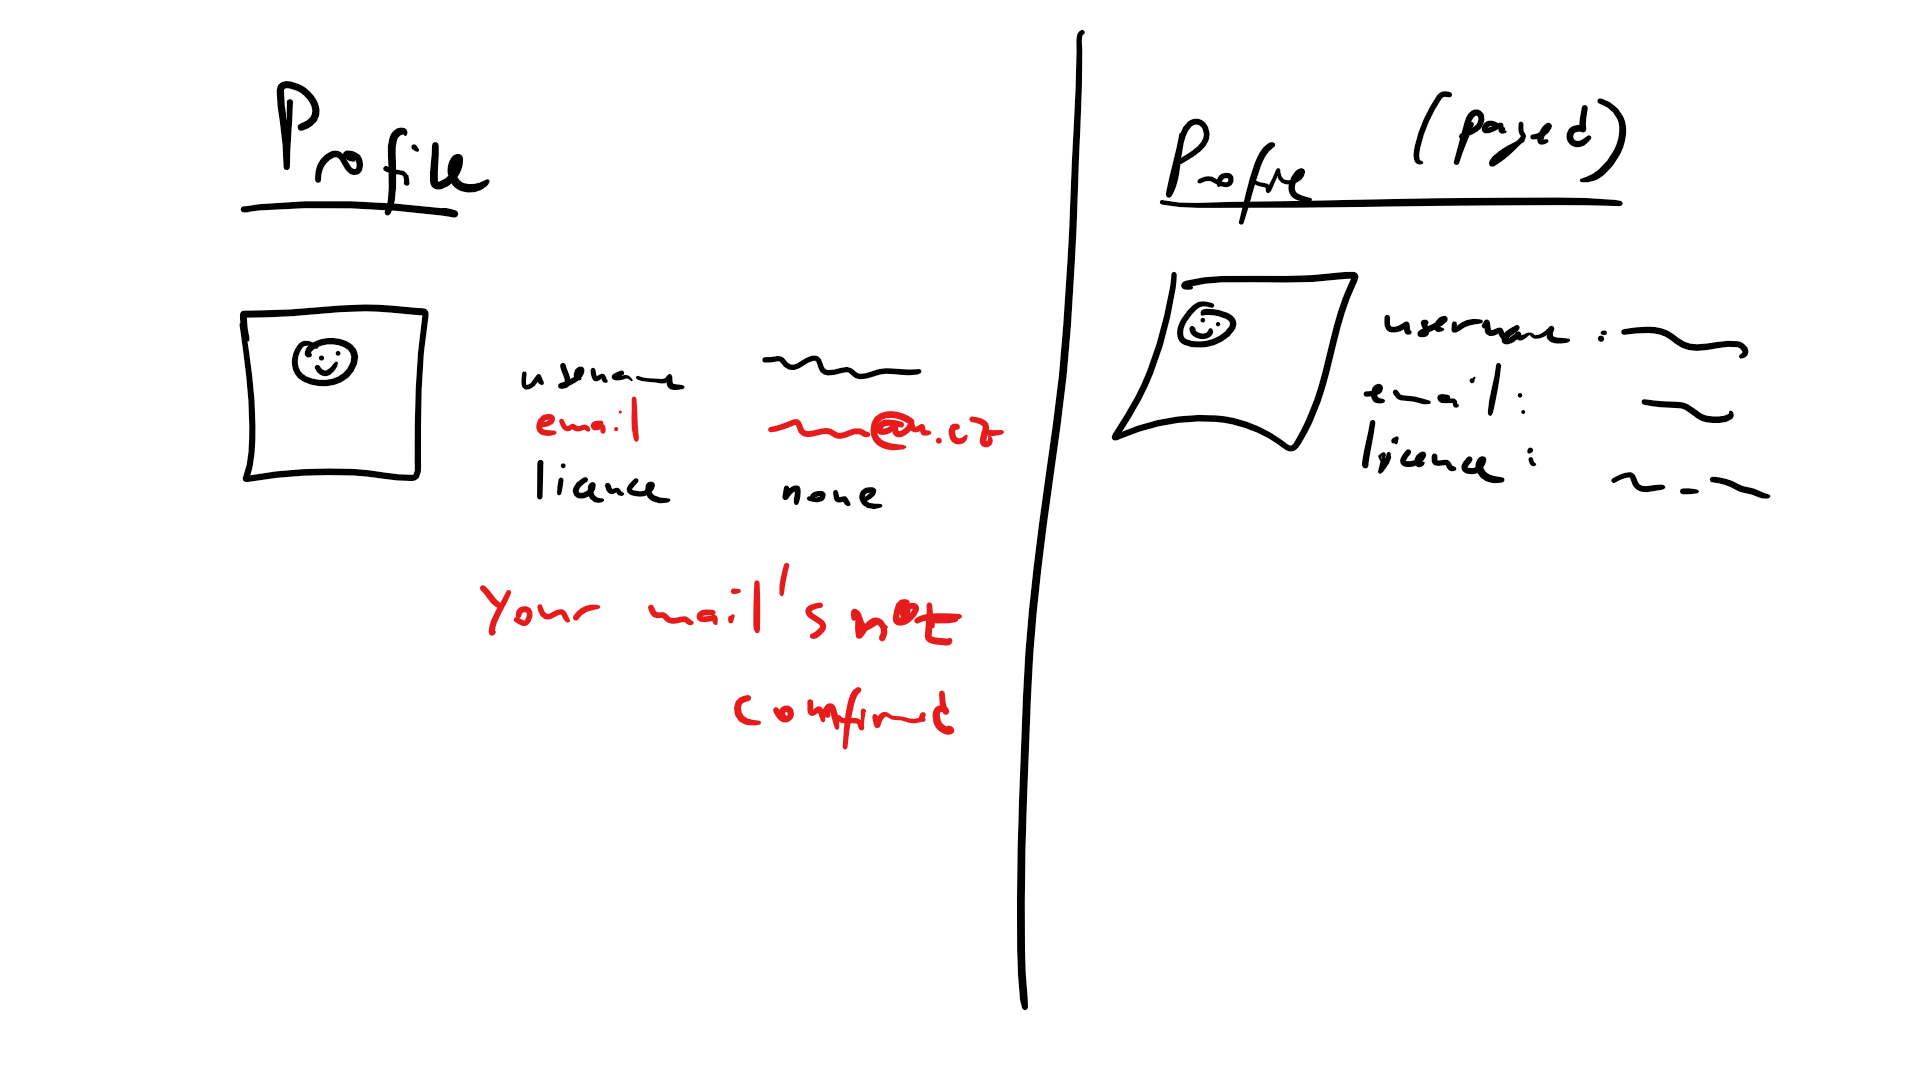 Profile
username
email @m.cz
licence none
Your mail's not
confirmed
Profile (payed)
username :
email :
licence :